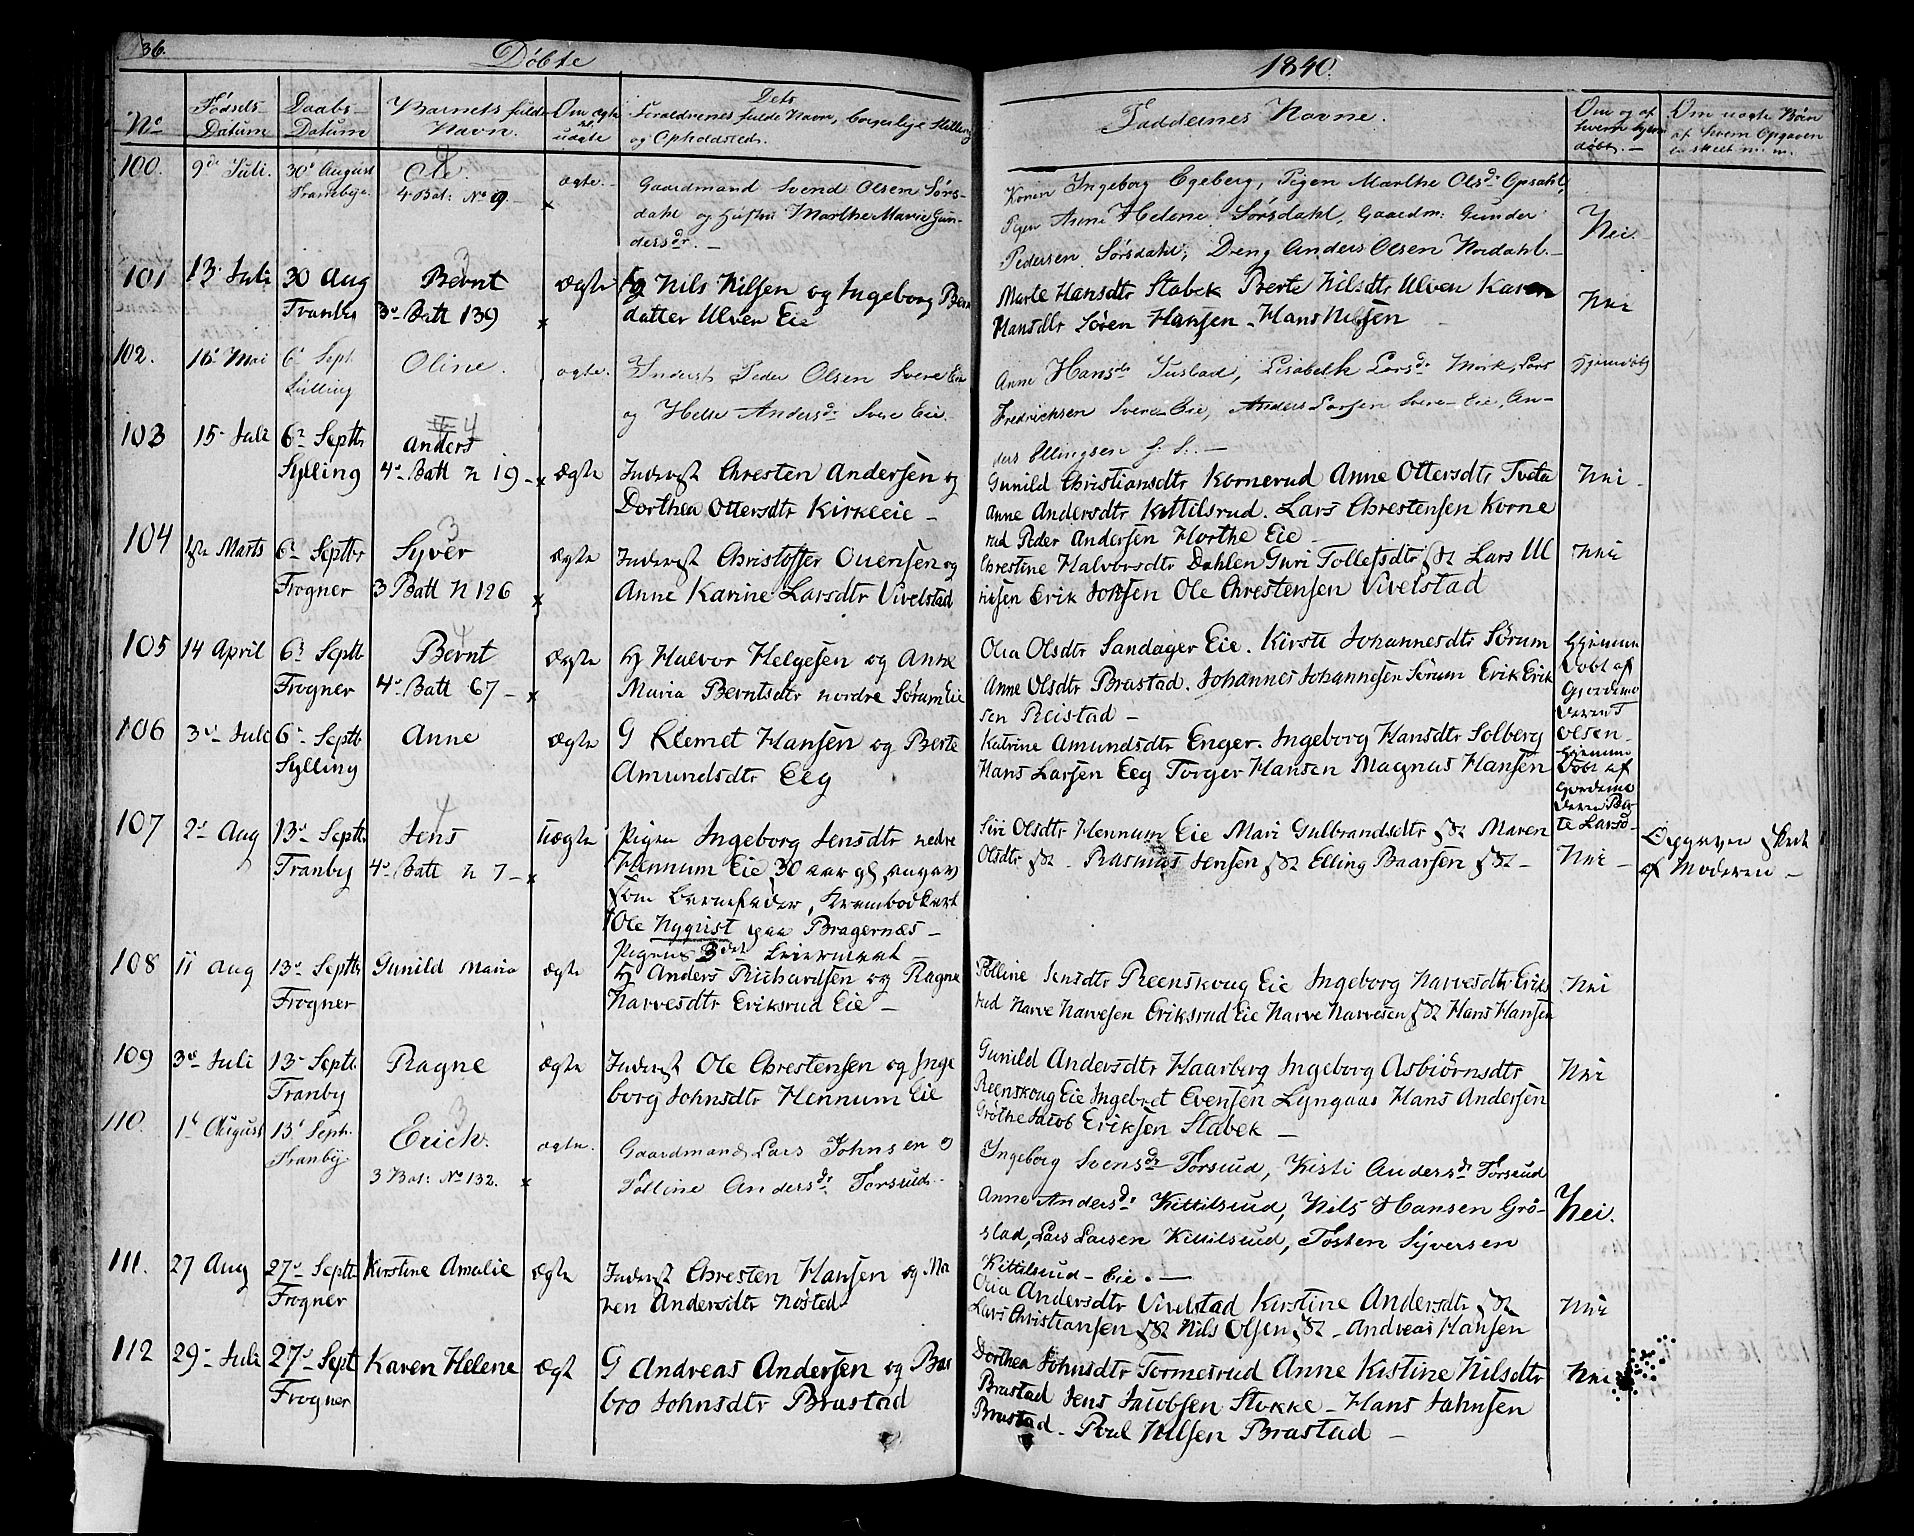 36.
Döbte
1840.
No
Fødsels-Datum
Daabs-Datum
Barnets fulde Navn.
Om ægte el. uægte
Dets Forældrenes fulde Navn, borgerlige Stilling og Opholdsted.
Faddernes Navne.
Om og af hvem hjemdöbt.
Om uægte Börn af hvem Opgaven er skeet m. m.
100. 9de Juli. 30te August Tranebye. Ole. ægte.
4 Bat: No 9. x
Gaardmand Svend Olsen Sørs-
dahl og Hustru Marthe Marie Gun-
dersdr. -
Konen Ingeborg Egeberg, Pigen Marthe Olsdr Opsahl,
Pigen Anne Helene Sørsdahl, Gaardm: Gunder
Pedersen Sørsdahl, Dreng Anders Olsen Nordahl. -
Nei.
101 13. Juli 30 Aug Tranby 3 Bernt ægte
3 Batt 139 x
Hg Nils Nilsen og Ingeborg Bern
datter Ulven Eie
Marte Hansdtr Stabek Berte Nilsdtr Ulven Karen
Hansdtr Sören Hansen - Hans Nilsen
Nei
102. 16 Mai 6 Sept. Sylling Oline. ægte.
Inderst Peder Olsen Svere Eie
og Helle Andersdr Svere Eie.
Anne Hansdr Tuslad, Lisabeth Larsdr Mörk, Lars
Fredrichsen Svere-Eie, Anders Larsen Svere-Eie, An-
ders Ellingsen
Hjemdöbt
103 15 Juli 6 Septbr Sylling 4 Anders ægte
4 Batt N 19 - x
Inderst Chresten Andersen og
Dorthea Ottersdtr Kirkeeie -
Gunild Christiansdtr Kornerud Anne Ottersdtr Tveta
Anne Andersdtr Kittilsrud. Lars Chrestensen Korne
rud Peder Andersen Horthe Eie -
Nei -
104 Marts 6 Septbr Frogner 3 Syver ægte
3 Batt N 126 x
Inderst Christoffer Ouensen og
Anne Karine Larsdtr Vivelstad
Chrestine Halvorsdtr Dahlen Guri Tollefsdtr Lars Ul
riksen Erik Johsen Ole Chrestensen Vivelstad
Nei
105 14 April 6 Septb Frogner 4 Bernt ægte
4 Batt 67 - x
Hg Halvor Helgesen og Anne
Maria Berntsdtr nordre Sörum Eie
Olia Olsdtr Sandager Eie. Kirste Johannesdtr Sörum
Anne Olsdtr Brastad. Johannes Johannesen Sörum Erik Erik
sen Reistad -
Hjemme
döbt af
Giordemo
deren T
Olsen -
106 3 Juli 6 Septb Sylling Anne ægte
G Klemet Hansen og Berte
Amundsdtr Eeg
Katrine Amundsdtr Enger. Ingeborg Hansdtr Solberg
Hans Larsen Eeg Torger Hansen Magnus Hansen
Hjemme
döbt af
Giordemo
deren Ber
te Larsd -
107 2 Aug 13 Septb Tranby 4 Jens Uægte
4 Batt N 7 - x
Pigen Ingeborg Jensdtr nedre
Hennum Eie 30 aar gl. angav
som Barnefader, Krambodkarl
Ole Nyquist paa Bragernæs -
Pigens 3die Leiermaal -
Siri Olsdtr Hennum Eie Mari Gulbrandsdtr Maren
Olsdtr - Rasmus Jensen Elling Baarsen -
Nei -
Opgaven skeet
af Moderen -
108 11 Aug 13 Septb Frogner Gunild Maria ægte
Hg Anders Richardsen og Ragne
Narvesdtr Eriksrud Eie -
Tolline Jensdtr Reenskoug Eie Ingeborg Narvesdtr Eriks
rud Narve Narvesen Eriksrud Eie Narve Narvesen Hans Hansen
Nei
109 3 Juli 13 Septb. Tranby Ragne ægte
Inderst Ole Chrestensen og Inge
borg Johnsdtr Hennum Eie
Gunild Andersdtr Haarberg Ingeborg Asbiörnsdtr
Reenskoug Eie Ingebret Evensen Lyngaas Hans Andersen
Gröthe Jacob Eriksen Stabek -
Nei
110. 1 August 13 Septb. Tranby 3 Erich. ægte.
3 Bat: No 132. x
Gaardmand Lars Johnsen og
Tolline Andersdr Torsrud.
Ingeborg Svensdr Torsrud, Kisti Andersdr Torsrud
Anne Andersdr Kittilsrud, Nils Hansen Grö-
stad, Lars Larsen Kittilsrud, Tosten Syversen
Kittilsrud-Eie. -
Nei.
111. 27 Aug 27 Septb Frogner Kirstine Amalie ægte
Inderst Chresten Hansen og Ma
ren Andersdtr Nøsted
Olia Andersdtr Vivelstad Kirstine Andersdtr
Lars Christiansen Nils Olsen - Andreas Hansen
Nei
112 29 Juli 27 Sept Frogner Karen Helene ægt
G Andreas Andersen og Bar
bro Johnsdtr Brastad
Dorthea Johnsdtr Tormesrud Anne Kistine Nilsdtr
Brastad Jens Jacobsen Stokke - Hans Johnsen
Brastad - Poul Nilsen Brastad -
Nei